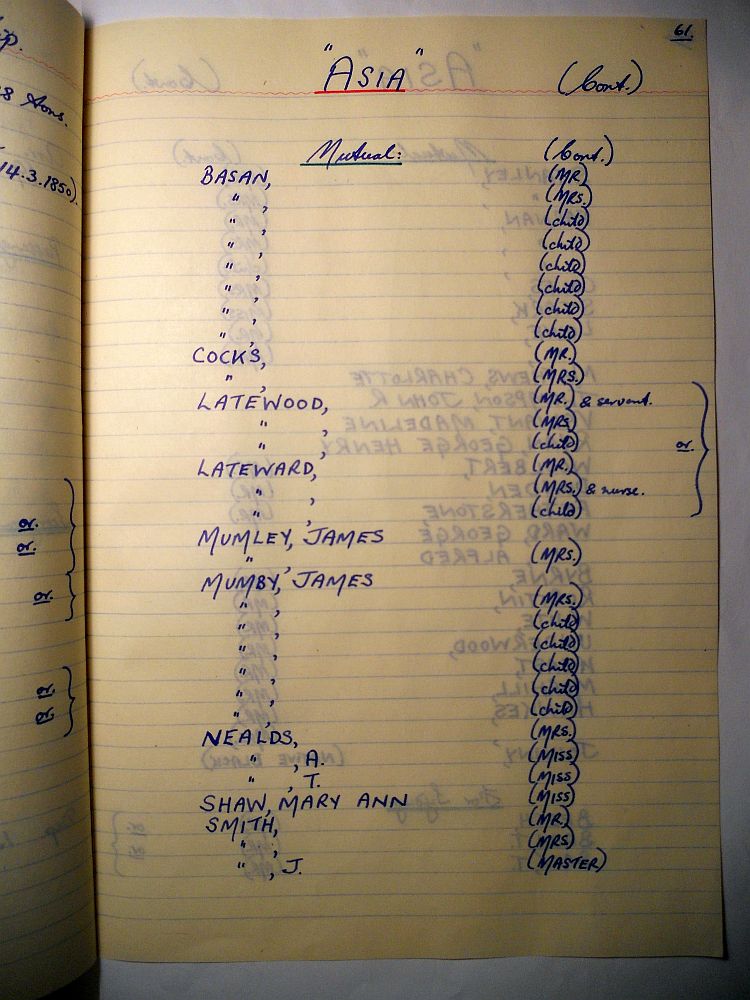 ip.
8 Tons.
14.3.1850).
or.
or.
or.
or.
or.
61.
"ASIA" (Cont.)
Mutual: (Cont.)
BASAN, (MR.)
" , (MRS.)
" , (child)
" , (child)
" , (child)
" , (child)
" , (child)
" , (child)
COCKS, (MR.)
" , (MRS.)
LATEWOOD, (MR.) & servant.
" , (MRS)
" , (child) or.
LATEWARD, (MR.)
" , (MRS.) & nurse.
" , (child)
MUMLEY, JAMES
" , (MRS.)
MUMBY, JAMES
" , (MRS.)
" , (child)
" , (child)
" , (child)
" , (child)
" , (child)
NEALDS, (MRS.)
" , A. (MISS)
" , T. (MISS)
SHAW, MARY ANN (MISS)
SMITH, (MR.)
" , (MRS)
" , J. (MASTER)